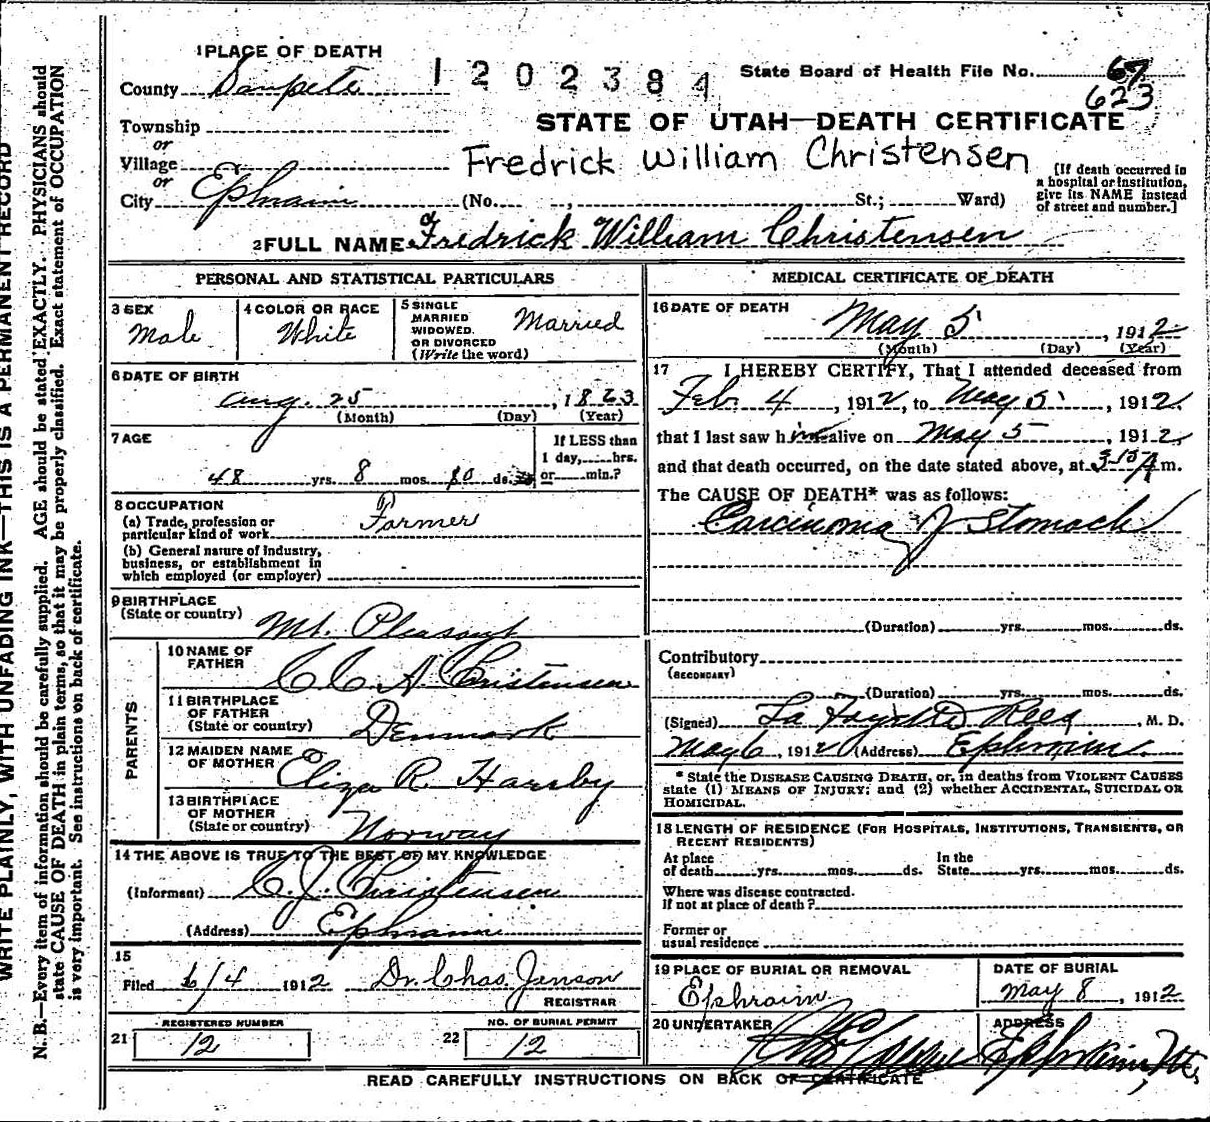 WRITE PLAINLY, WITH UNFADING INK—THIS IS A PERMANENT RECORD
N. B.—Every item of information should be carefully supplied. AGE should be stated EXACTLY. PHYSICIANS should
state CAUSE OF DEATH in plain terms, so that it may be properly classified. Exact statement of OCCUPATION
is very important. See instructions on back of certificate.
1 PLACE OF DEATH
County Sanpete
1202384
State Board of Health File No. 67
623
STATE OF UTAH—DEATH CERTIFICATE
Township
or
Village
or
City Ephraim (No. , St.; Ward)
Fredrick William Christensen
[If death occurred in
a hospital or institution,
give its NAME instead
of street and number.]
2 FULL NAME Fredrick William Christensen
PERSONAL AND STATISTICAL PARTICULARS
3 SEX
Male
4 COLOR OR RACE
White
5 SINGLE
MARRIED
WIDOWED
OR DIVORCED
(Write the word)
Married
6 DATE OF BIRTH
Aug. 25, 1863
(Month) (Day) (Year)
7 AGE
48 yrs. 8 mos. 10 ds.
If LESS than
1 day, hrs.
or min.?
8 OCCUPATION
(a) Trade, profession or
particular kind of work Farmer
(b) General nature of industry,
business, or establishment in
which employed (or employer)
9 BIRTHPLACE
(State or country)
Mt. Pleasant
PARENTS
10 NAME OF
FATHER
C C A Christensen
11 BIRTHPLACE
OF FATHER
(State or country)
Denmark
12 MAIDEN NAME
OF MOTHER
Eliza R. Haarby
13 BIRTHPLACE
OF MOTHER
(State or country)
Norway
14 THE ABOVE IS TRUE TO THE BEST OF MY KNOWLEDGE
(Informant) C. J. Christensen
(Address) Ephraim
15
Filed 6/4 1912 Dr. Chas. Jenson
REGISTRAR
21 REGISTERED NUMBER
12
22 NO. OF BURIAL PERMIT
12
MEDICAL CERTIFICATE OF DEATH
16 DATE OF DEATH
May 5, 1912
(Month) (Day) (Year)
17 I HEREBY CERTIFY, That I attended deceased from
Feb. 4, 1912, to May 5, 1912,
that I last saw him alive on May 5, 1912,
and that death occurred, on the date stated above, at A m.
The CAUSE OF DEATH* was as follows:
Carcinoma of Stomach
(Duration) yrs. mos. ds.
Contributory
(SECONDARY)
(Duration) yrs. mos. ds.
(Signed) La Fayette Rees, M. D.
May 6, 1912 (Address) Ephraim
* State the DISEASE CAUSING DEATH, or, in deaths from VIOLENT CAUSES
state (1) MEANS OF INJURY; and (2) whether ACCIDENTAL, SUICIDAL OR
HOMICIDAL.
18 LENGTH OF RESIDENCE (FOR HOSPITALS, INSTITUTIONS, TRANSIENTS, OR
RECENT RESIDENTS)
At place
of death yrs. mos. ds.
In the
State yrs. mos. ds.
Where was disease contracted.
If not at place of death?
Former or
usual residence
19 PLACE OF BURIAL OR REMOVAL
Ephraim
DATE OF BURIAL
May 8, 1912
20 UNDERTAKER
ADDRESS
Ephraim,
READ CAREFULLY INSTRUCTIONS ON BACK OF CERTIFICATE